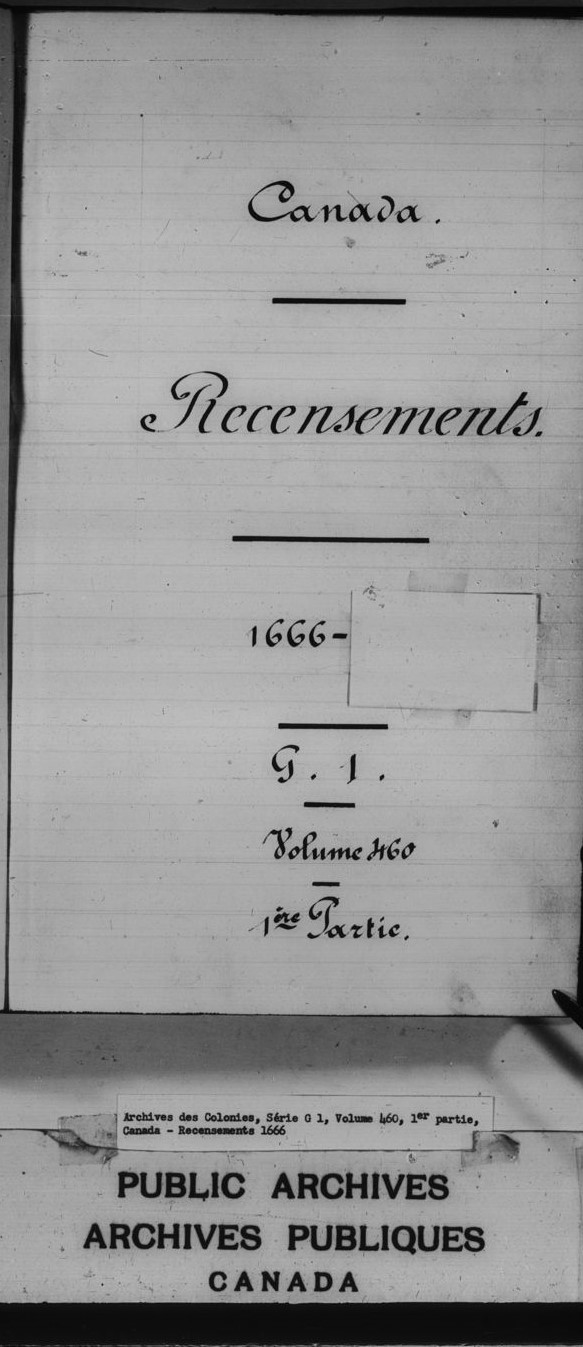 Canada.
Recensements.
1666-
G. 1.
Volume 460
1ère Partie.
Archives des Colonies, Série G 1, Volume 460, 1er partie,
Canada - Recensements 1666
PUBLIC ARCHIVES
ARCHIVES PUBLIQUES
CANADA